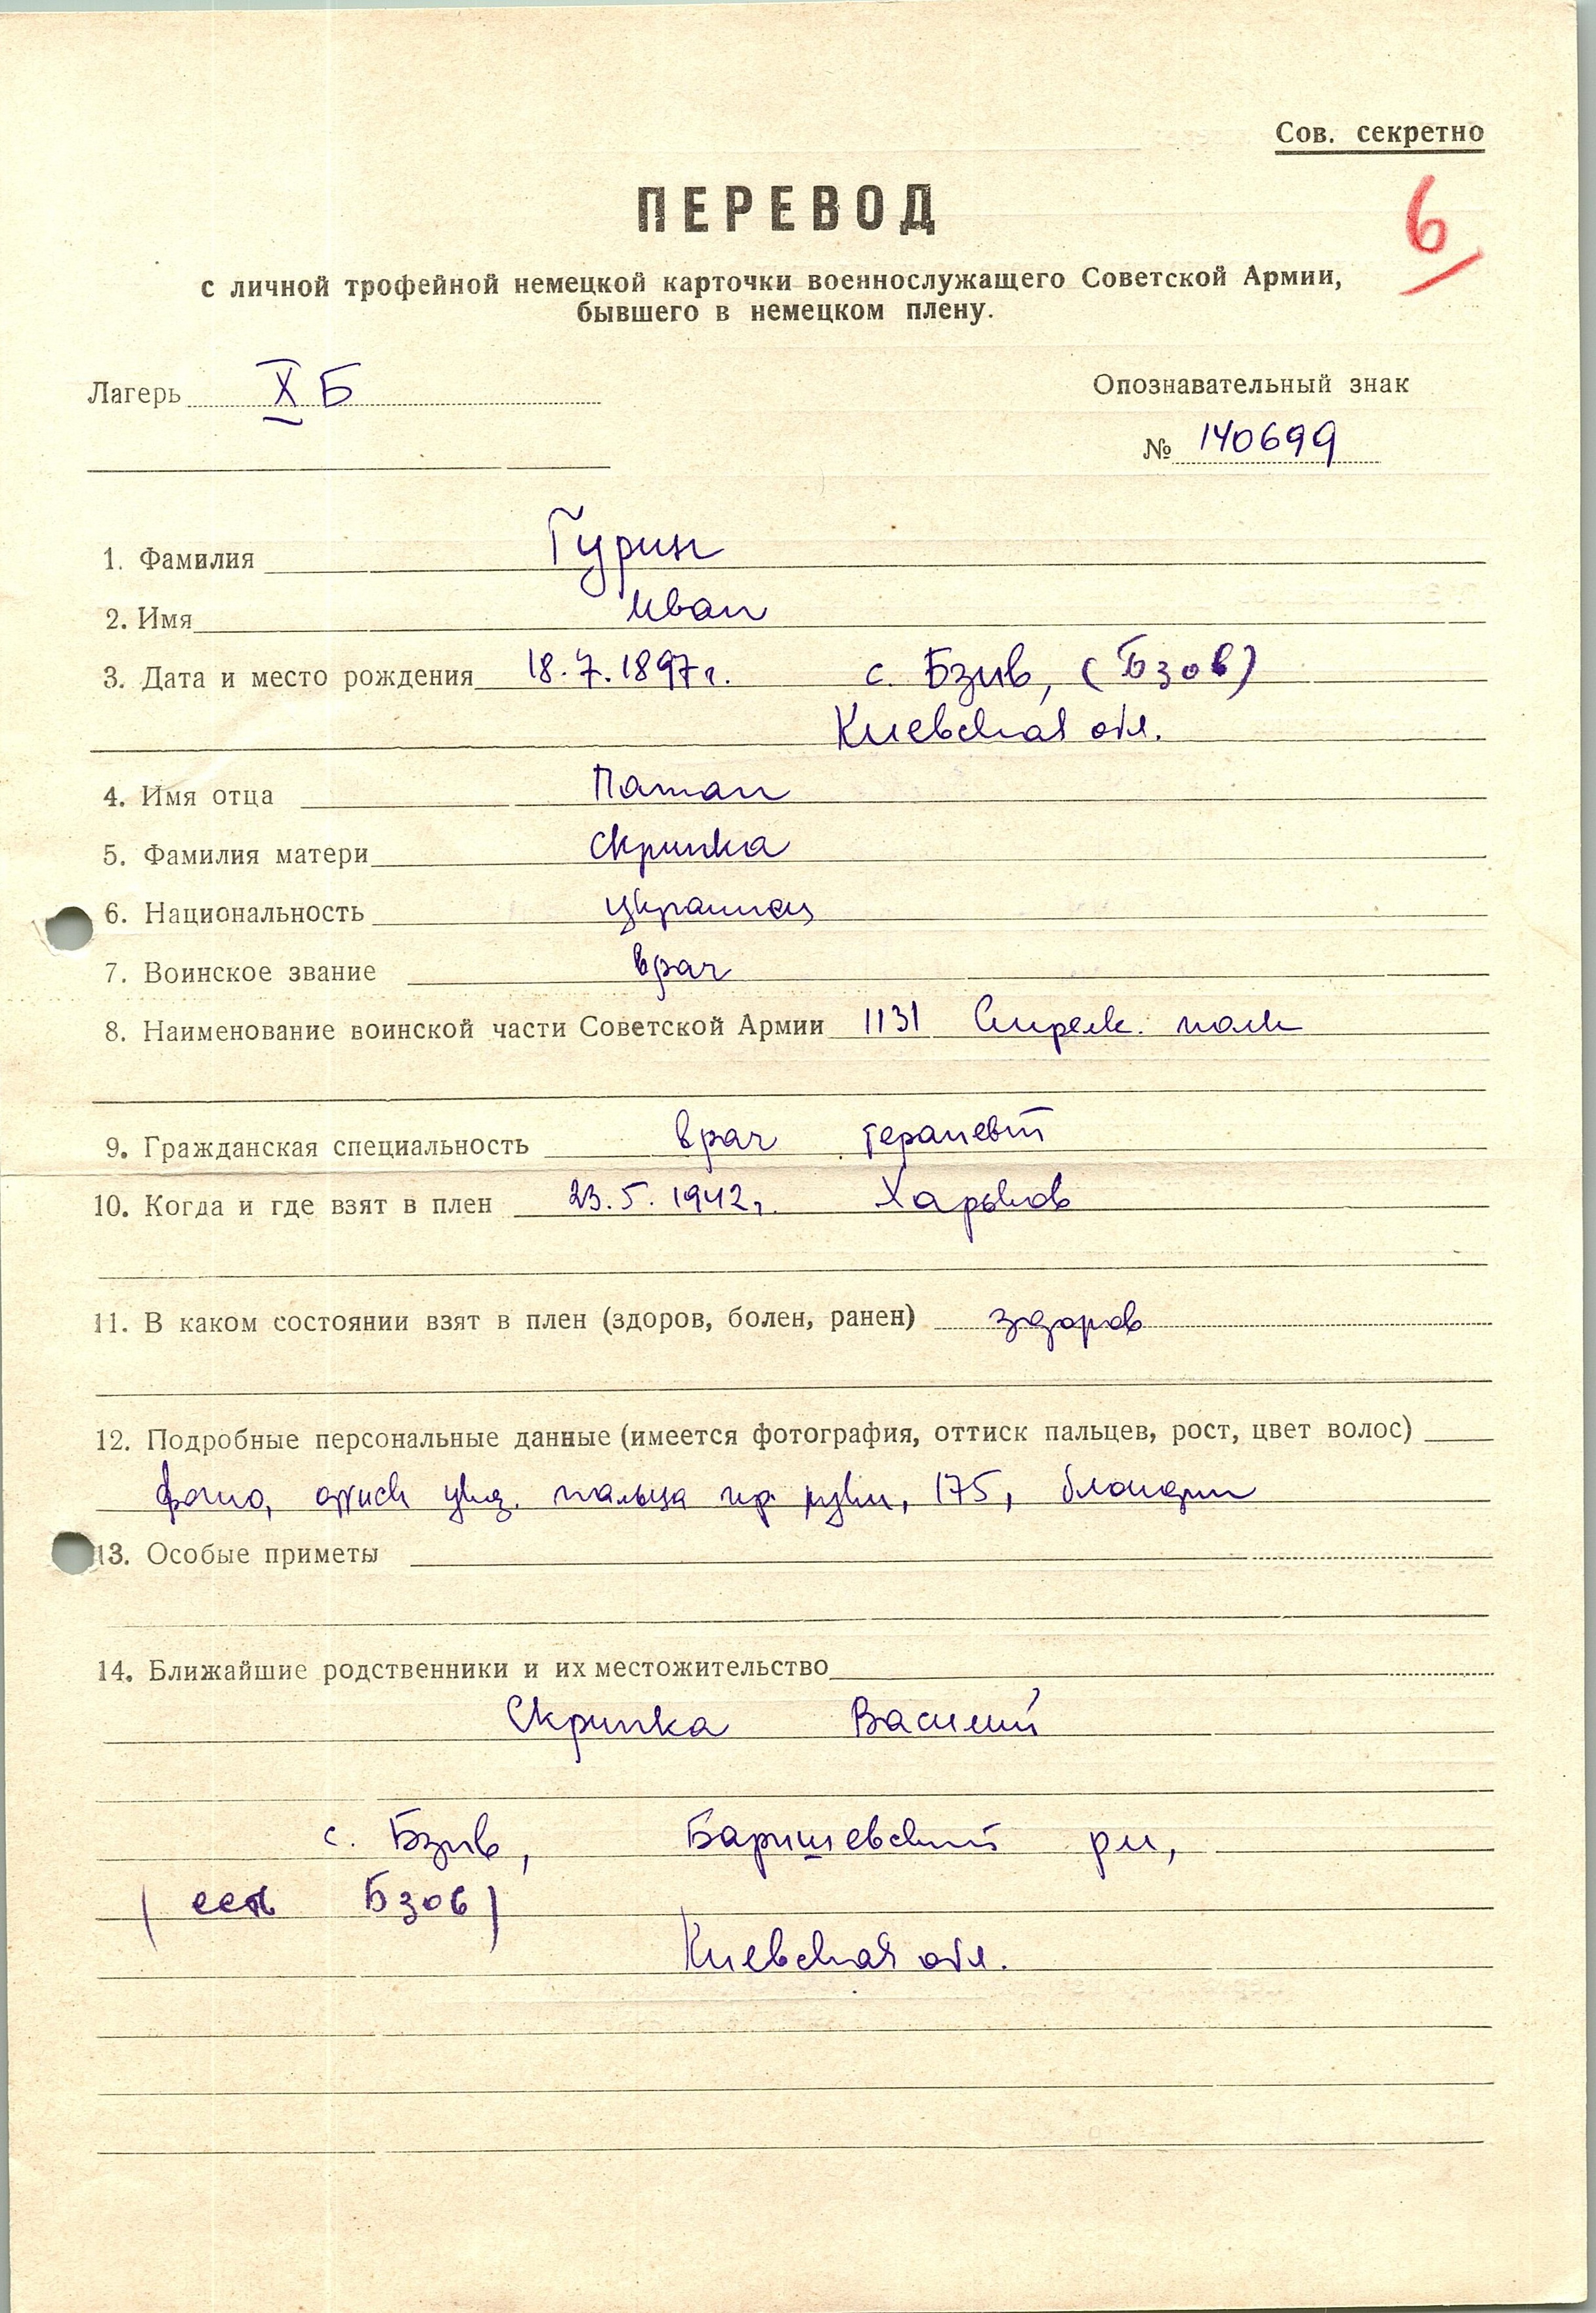 Сов. секретно
ПЕРЕВОД
6
с личной трофейной немецкой карточки военнослужащего Советской Армии,
бывшего в немецком плену.
Лагерь X Б
Опознавательный знак
№ 140699
1. Фамилия Гурин
2. Имя Иван
3. Дата и место рождения 18.7.1897г. с. Бзив, (Бзов)
Киевская обл.
4. Имя отца Патап
5. Фамилия матери Скрипка
6. Национальность украинец
7. Воинское звание врач
8. Наименование воинской части Советской Армии 1131 Стрелк. полк
9. Гражданская специальность врач терапевт
10. Когда и где взят в плен 23.5.1942г. Харьков
11. В каком состоянии взят в плен (здоров, болен, ранен) здоров
12. Подробные персональные данные (имеется фотография, оттиск пальцев, рост, цвет волос)
фото, оттиск указ. пальца пр. руки, 175, блондин
13. Особые приметы
14. Ближайшие родственники и их местожительство
Скрипка Василий
с. Бзив, Баришевский рн,
(есть Бзов)
Киевская обл.